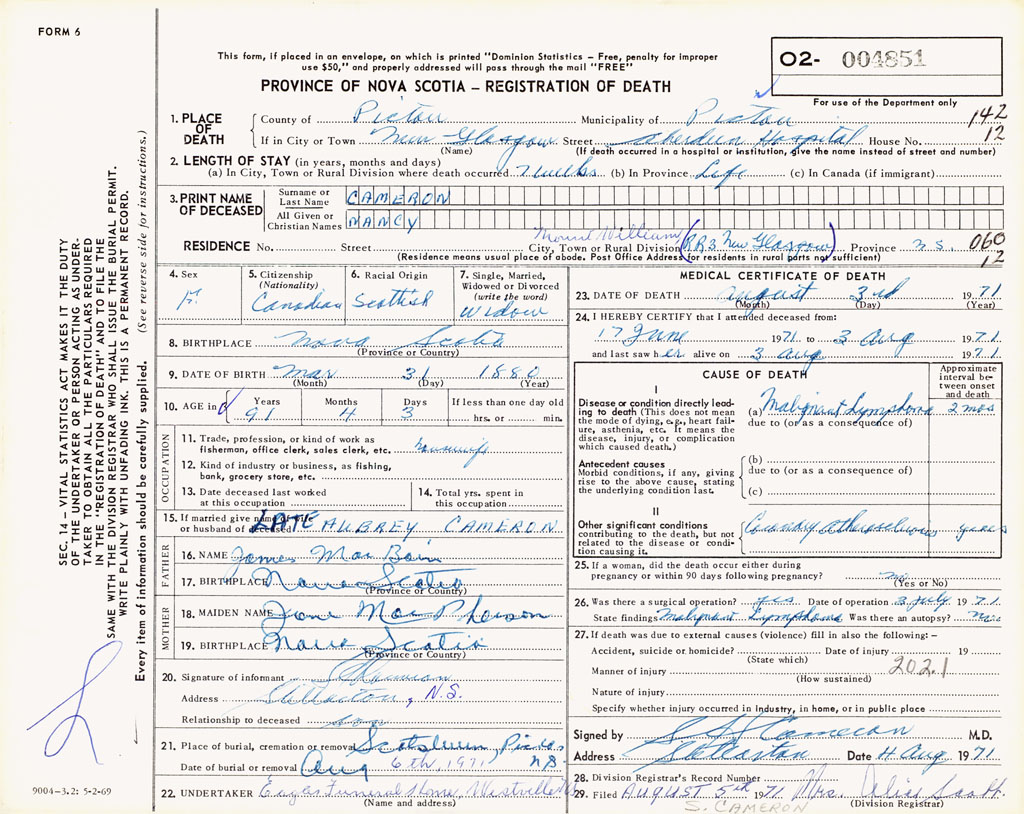 FORM 6
This form, if placed in an envelope, on which is printed "Dominion Statistics – Free, penalty for improper
use $50," and properly addressed will pass through the mail "FREE"
PROVINCE OF NOVA SCOTIA – REGISTRATION OF DEATH
O2- 004851
For use of the Department only
1. PLACE OF DEATH
County of Pictou Municipality of Pictou 142
If in City or Town New Glasgow Street Aberdeen Hospital House No. 12
(Name) (If death occurred in a hospital or institution, give the name instead of street and number)
2. LENGTH OF STAY (in years, months and days)
(a) In City, Town or Rural Division where death occurred 7 weeks (b) In Province Life (c) In Canada (if immigrant)
3. PRINT NAME OF DECEASED
Surname or Last Name CAMERON
All Given or Christian Names NANCY
Mount William
RESIDENCE No. Street City, Town or Rural Division (RR3 New Glasgow) Province N.S. 060
(Residence means usual place of abode. Post Office Address for residents in rural parts not sufficient) 12
4. Sex F.
5. Citizenship (Nationality) Canadian
6. Racial Origin Scottish
7. Single, Married, Widowed or Divorced (write the word) Widow
8. BIRTHPLACE Nova Scotia
(Province or Country)
9. DATE OF BIRTH Mar 31 1880
(Month) (Day) (Year)
10. AGE in Years Months Days If less than one day old
91 4 3 hrs. or min.
OCCUPATION
11. Trade, profession, or kind of work as
fisherman, office clerk, sales clerk, etc. housewife
12. Kind of industry or business, as fishing,
bank, grocery store, etc.
13. Date deceased last worked
at this occupation
14. Total yrs. spent in
this occupation
15. If married give name of wife
or husband of deceased LATE AUBREY CAMERON
FATHER
16. NAME James MacBain
17. BIRTHPLACE Nova Scotia
(Province or Country)
MOTHER
18. MAIDEN NAME Jane MacPherson
19. BIRTHPLACE Nova Scotia
(Province or Country)
20. Signature of informant
Address Stellarton, N.S.
Relationship to deceased son
21. Place of burial, cremation or removal Pictou
Date of burial or removal Aug 6th, 1971 N.S.
22. UNDERTAKER Funeral Home, Westville
(Name and address)
MEDICAL CERTIFICATE OF DEATH
23. DATE OF DEATH August 3rd 1971
(Month) (Day) (Year)
24. I HEREBY CERTIFY that I attended deceased from:
17 June 1971 to 3 Aug 1971
and last saw her alive on 3 Aug 1971
CAUSE OF DEATH
Approximate interval between onset and death
I
Disease or condition directly leading to death (This does not mean the mode of dying, e.g., heart failure, asthenia, etc. It means the disease, injury, or complication which caused death.)
(a) Malignant Lymphoma 2 mos
due to (or as a consequence of)
Antecedent causes
Morbid conditions, if any, giving rise to the above cause, stating the underlying condition last.
(b)
due to (or as a consequence of)
(c)
II
Other significant conditions contributing to the death, but not related to the disease or condition causing it.
Coronary Atherosclerosis years
25. If a woman, did the death occur either during
pregnancy or within 90 days following pregnancy? no
(Yes or No)
26. Was there a surgical operation? yes Date of operation 3 July 1971
State findings Malignant Lymphoma Was there an autopsy?
27. If death was due to external causes (violence) fill in also the following: –
Accident, suicide or homicide? Date of injury 19
(State which)
Manner of injury 202.1
(How sustained)
Nature of injury
Specify whether injury occurred in industry, in home, or in public place
Signed by Cameron M.D.
Address Stellarton Date 4 Aug 1971
28. Division Registrar's Record Number
29. Filed AUGUST 5th 1971 Mrs.
S. CAMERON (Division Registrar)
SEC. 14 – VITAL STATISTICS ACT MAKES IT THE DUTY
OF THE UNDERTAKER OR PERSON ACTING AS UNDER-
TAKER TO OBTAIN ALL THE PARTICULARS REQUIRED
IN THE "REGISTRATION OF DEATH" AND TO FILE THE
SAME WITH THE DIVISION REGISTRAR WHO SHALL ISSUE THE BURIAL PERMIT.
WRITE PLAINLY WITH UNFADING INK. THIS IS A PERMANENT RECORD.
Every item of information should be carefully supplied. (See reverse side for instructions.)
9004-3.2: 5-2-69